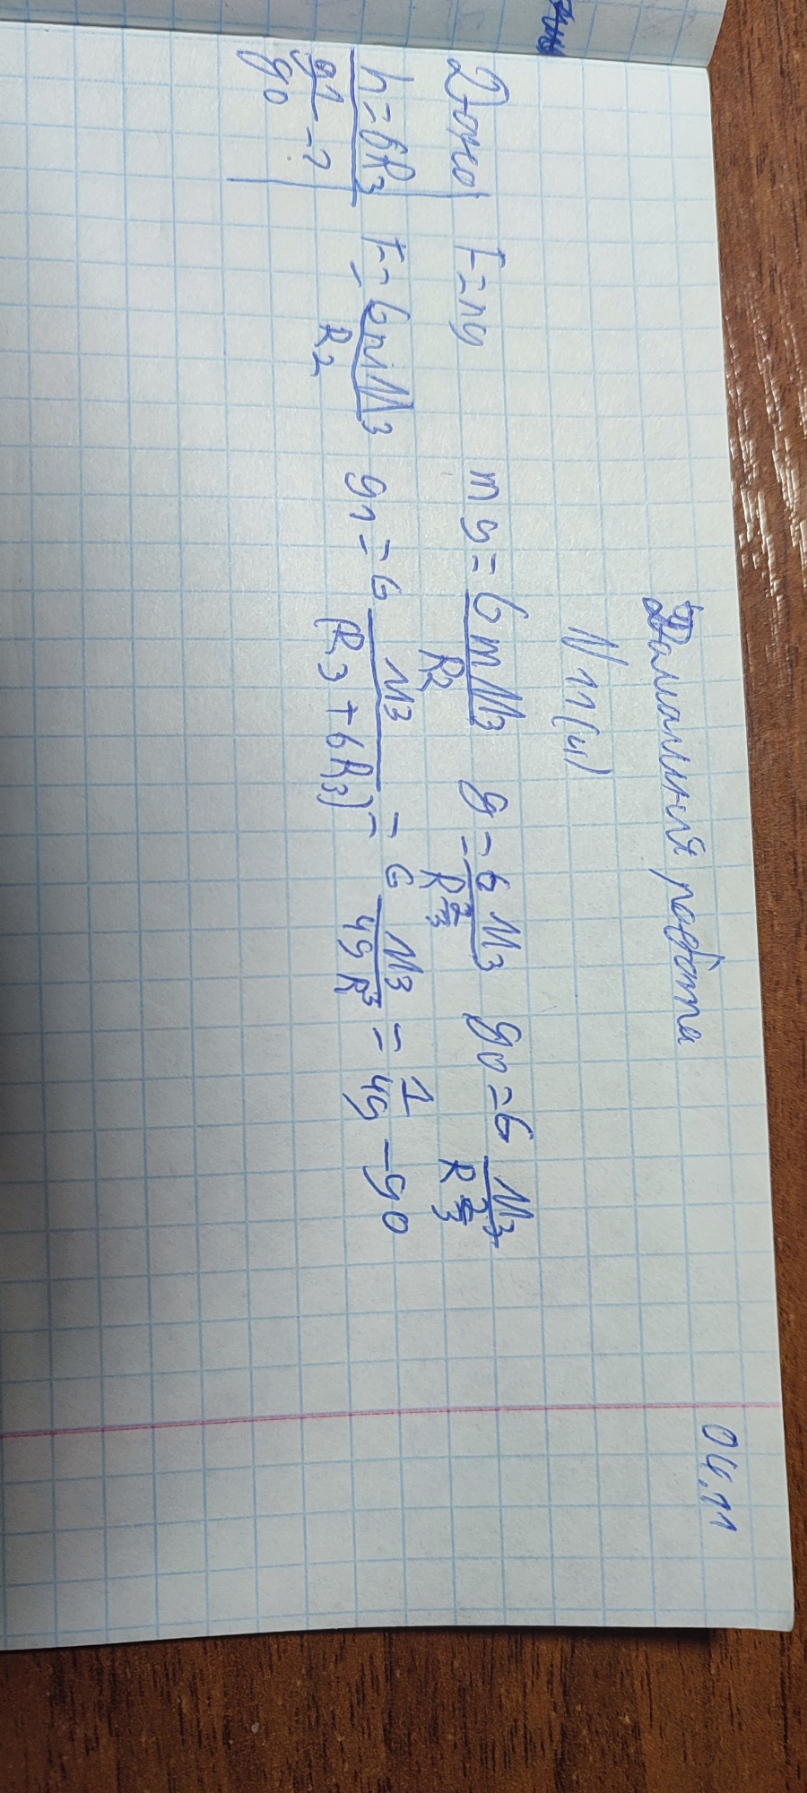 04.11
Домашняя работа
N 11(4)
Дано F=mg mg=GmM3/R2 g=GM3/R2/3 g0=G M3/R2/3
h=6R3 F=GmM3/R2 g1=G M3/(R3+6R3)2 = G M3/49R3 = 1/49 - g0
g1/g0 -?